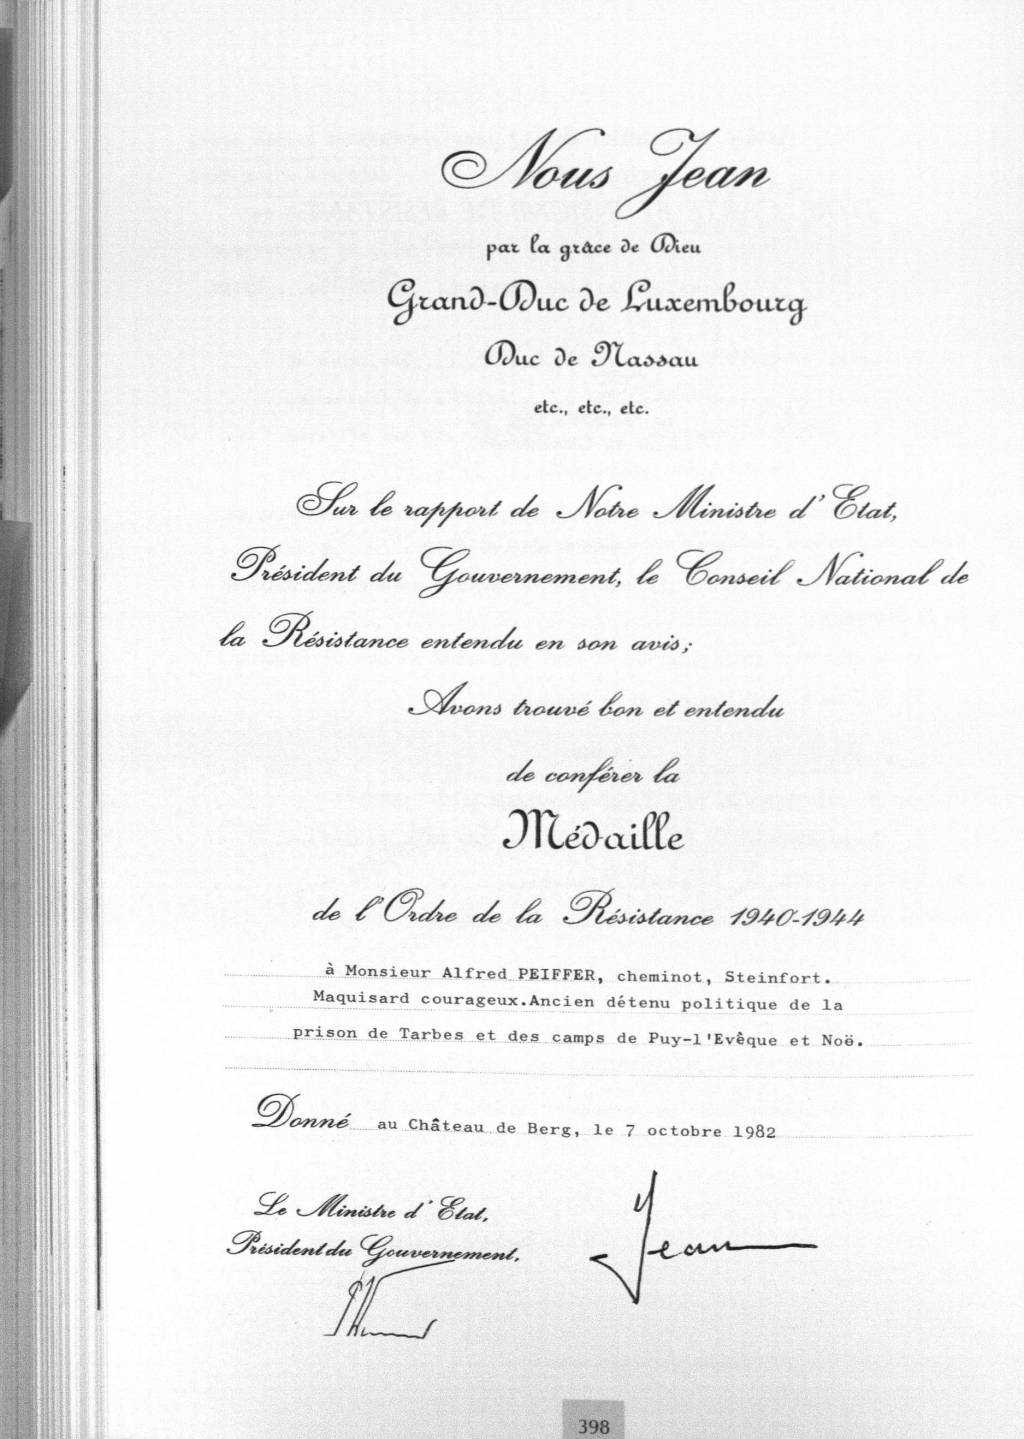 Nous Jean
par la grâce de Dieu
Grand-Duc de Luxembourg
Duc de Nassau
etc., etc., etc.
Sur le rapport de Notre Ministre d'Etat,
Président du Gouvernement, le Conseil National de
la Résistance entendu en son avis;
Avons trouvé bon et entendu
de conférer la
Médaille
de l'Ordre de la Résistance 1940-1944
à Monsieur Alfred PEIFFER, cheminot, Steinfort.
Maquisard courageux.Ancien détenu politique de la
prison de Tarbes et des camps de Puy-l'Evêque et Noë.
Donné au Château de Berg, le 7 octobre 1982
Le Ministre d'Etat,
Président du Gouvernement,
Jean
398